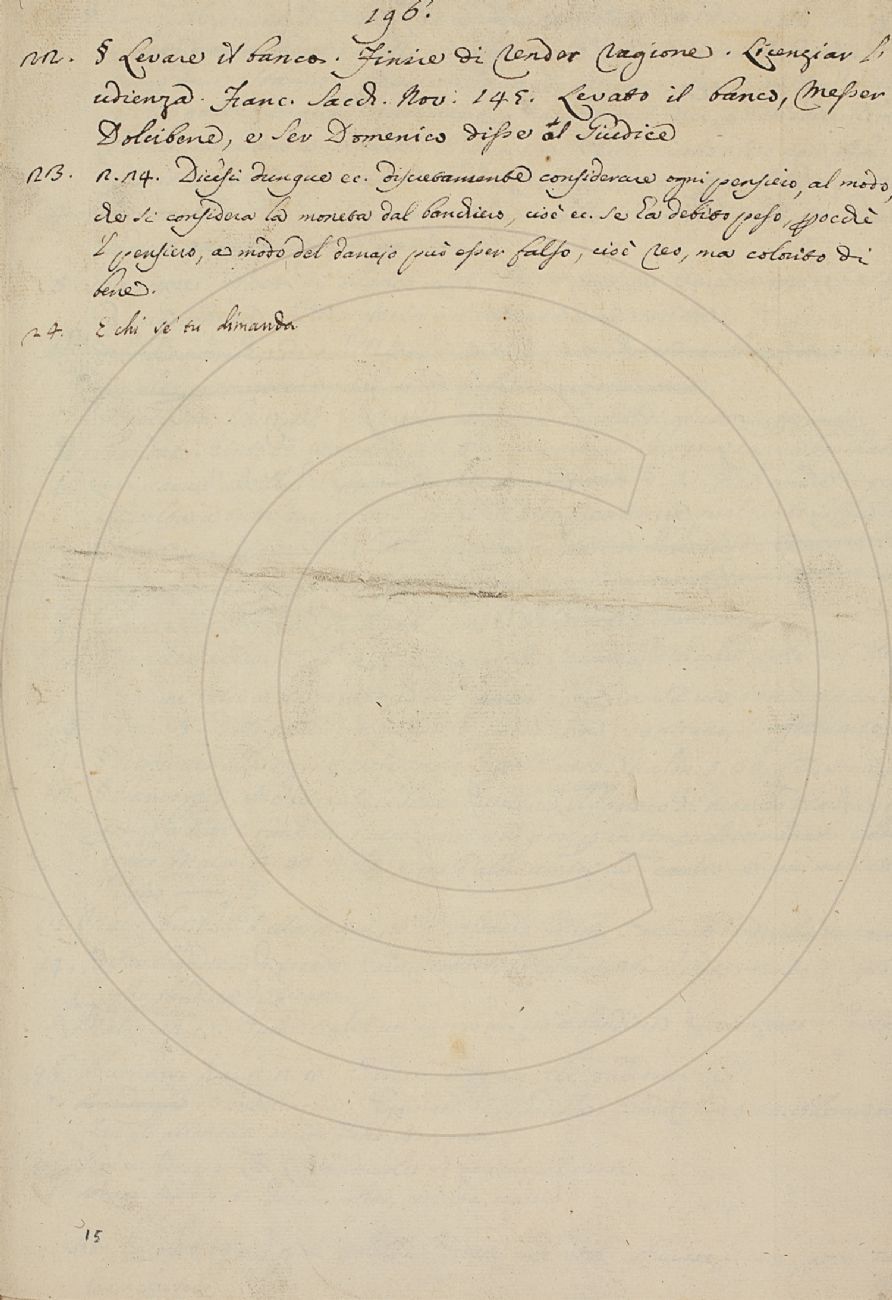 196.
22. § Levare il banco. Finire di render ragione. Licenziar l'
udienza. Franc. Sacch. Nov: 145. Levato il banco, Messer
Dolcibene, e Ser Domenico disse al Giudice
23. n. 24. Dicesi dunque ec. discretamente considerare ogni pensiero, al modo,
che si considera la moneta dal banchiero, cioè ec. se l'à debito peso, ppocchè
'l pensiero, a modo del danajo può esser falso, cioè reo, ma colorito di
bene.
24. E chi se' tu dimanda
15